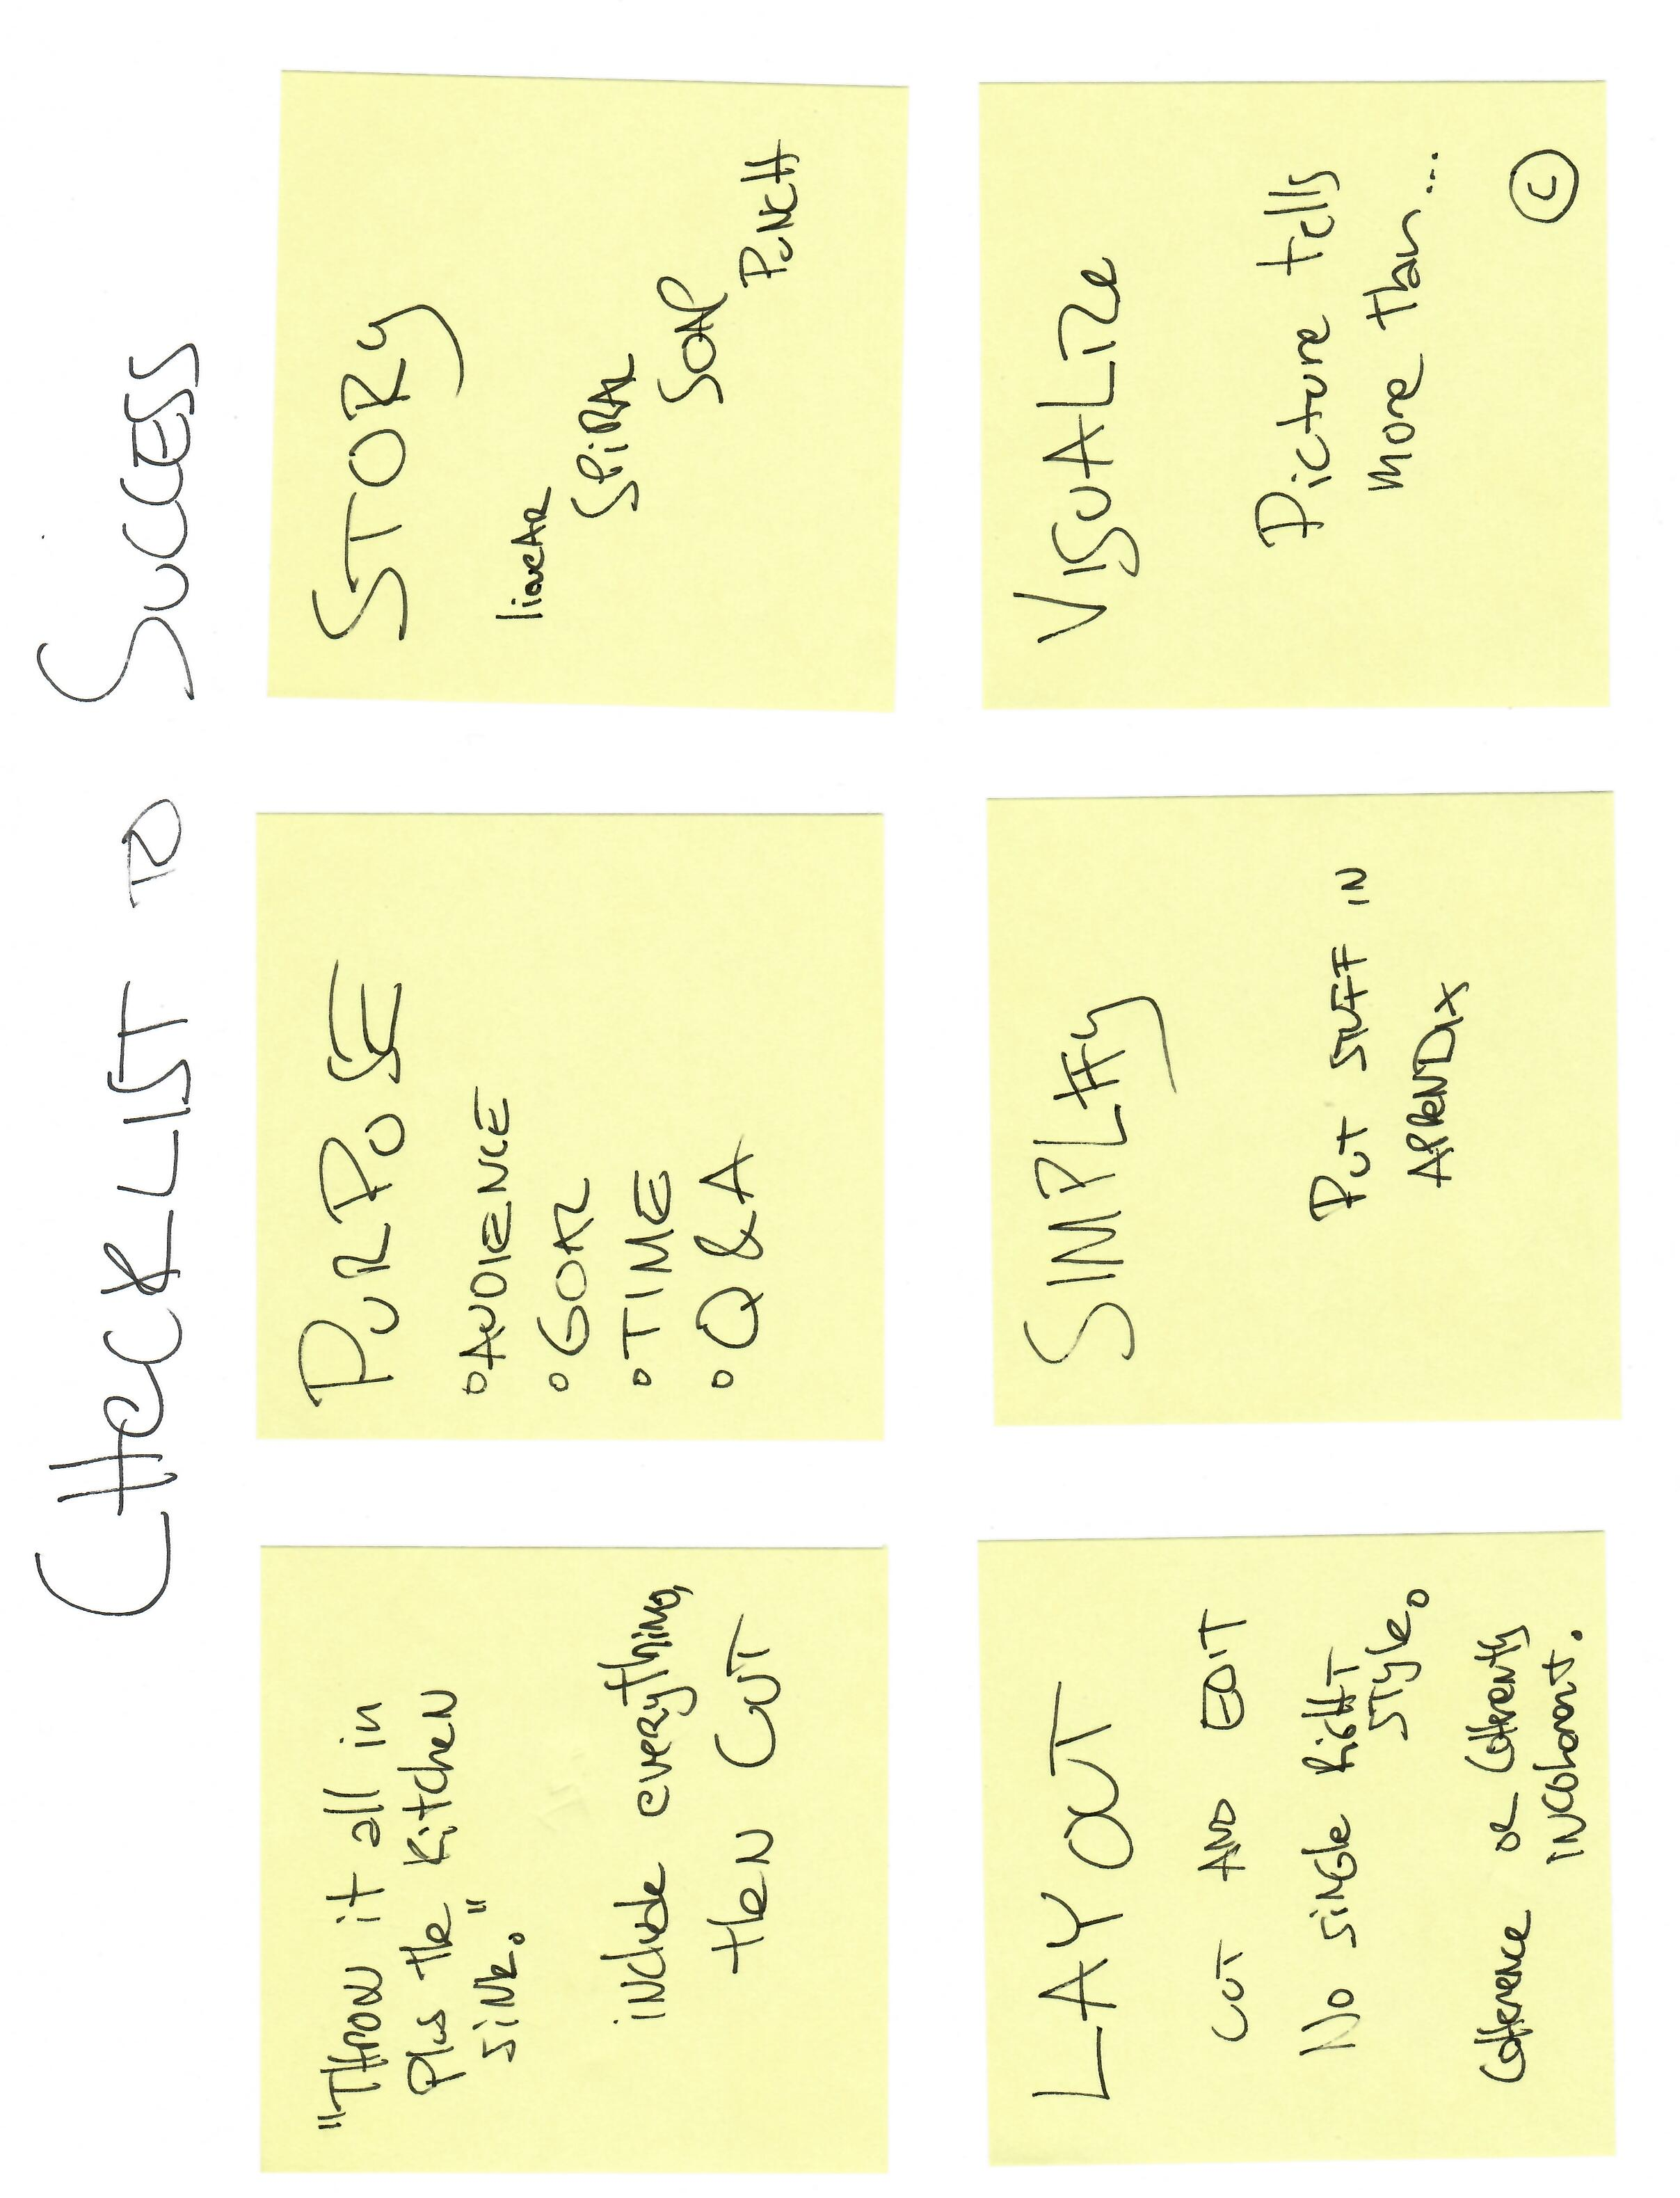 CHECKLIST TO SUCCESS
"THROW it all in
Plus the Kitchen
SiNK."
iNClude everything,
theN CUT
PURPOSE
° AUDIENCE
° GOAL
° TIME
° Q & A
STORY
lineAR
SPiRAL
SOAP
PUNCH
LAYOUT
CUT AND EDIT
No SiNGle RiGHT
STYle.
CoHereNce or CoHerently
iNCoherent.
SIMPLIFY
PUT STUFF IN
APPENDIX
VISUALIZe
Picture tells
More than...